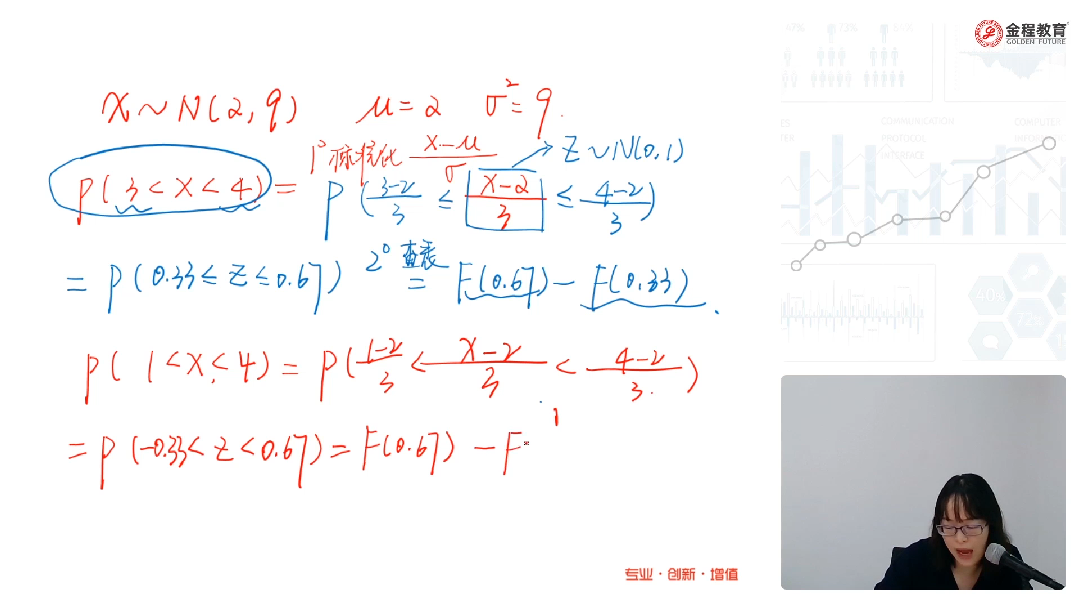 金程教育
GOLDEN FUTURE
X ~ N(2, 9)   μ = 2   σ² = 9.
1° 标准化 (X-μ)/σ   → Z ~ N(0,1)
P(3 < X < 4) = P((3-2)/3 ≤ (X-2)/3 ≤ (4-2)/3)
= P(0.33 ≤ Z ≤ 0.67)  2° 查表 = F(0.67) - F(0.33).
P(1 < X < 4) = P((1-2)/3 < (X-2)/3 < (4-2)/3)
= P(-0.33 < Z < 0.67) = F(0.67) - F
专业·创新·增值